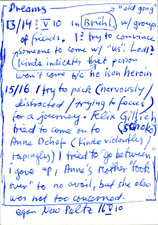 Dreams
"old gang"
13/14 ? V 10 in Brühl w/ group
of friends. I ? try to convince
someone to come w/ "us".
(kinda indicates that person
won't come b/c he is on heroin
15/16 I try to pack (nervously /
distracted / trying to focus)
for a journey. Felix
tried to come on to
Anne (kinda violently/
rapingly) I tried to "go between"
I gave up, Anne's mother "took
over" to no avail, but she also
was not too concerned.
New Paltz V 10